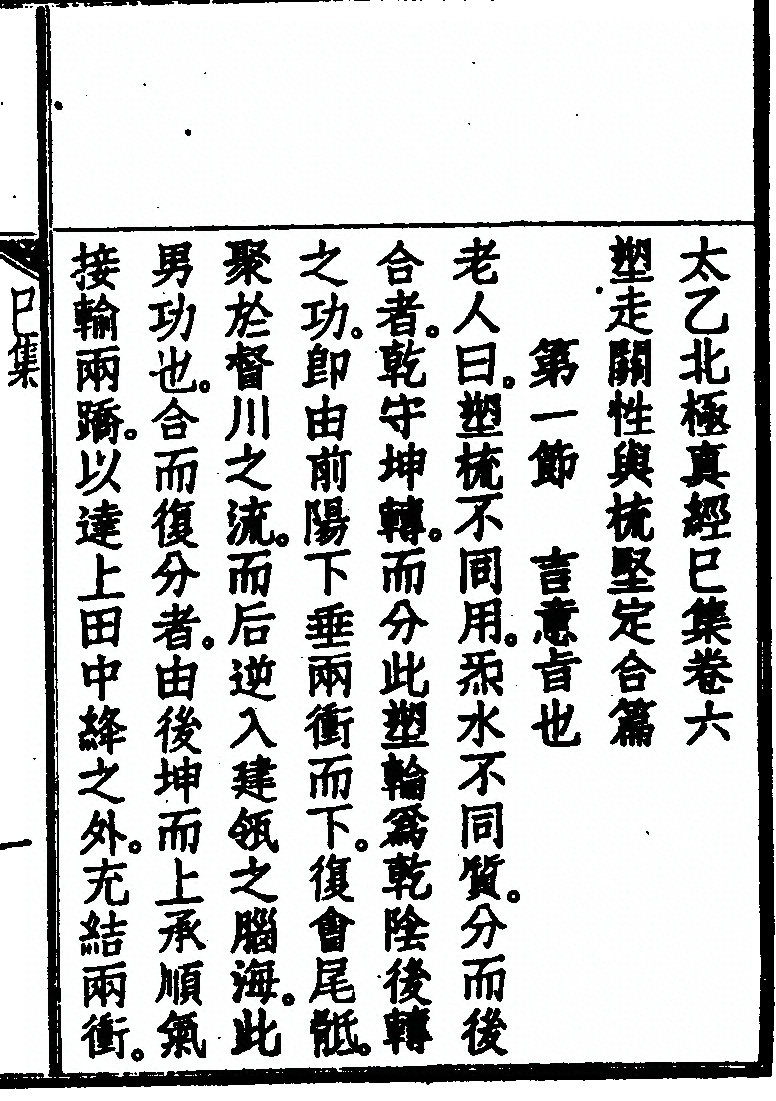 太乙北極真經巳集卷六
塑走關性與梳堅定合篇
第一節　言意旨也
老人曰。塑梳不同用。炁水不同質。分而後
合者。乾守坤轉。而分此塑輪爲乾陰後轉
之功。卽由前陽下垂兩衝而下。復會尾骶。
聚於督川之流。而后逆入建瓴之腦海。此
男功也。合而復分者。由後坤而上承順氣
接輪兩蹻。以達上田中絳之外。充結兩衝。
巳集
一